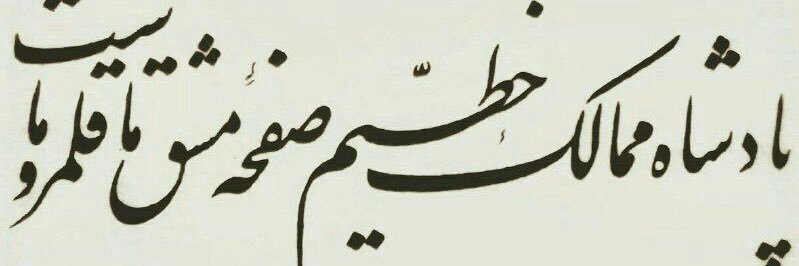 پادشاه ممالک خطّیم صفحهٔ مشق ما قلمرو ماست